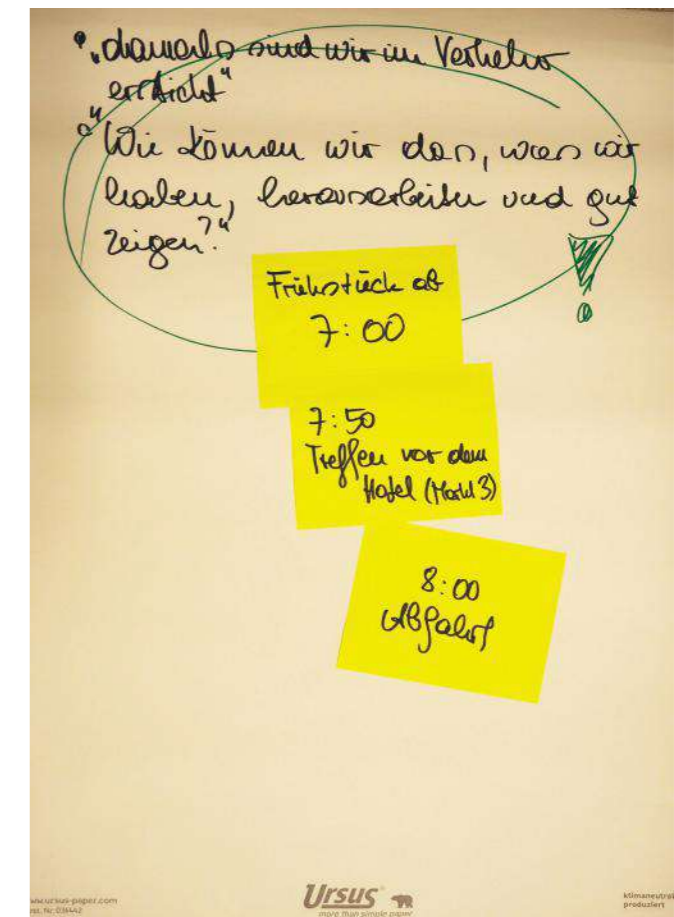 • „damals sind wir im Verkehr
erstickt“
o „Wie können wir das, was wir
haben, herausarbeiten und gut
zeigen?“
!
Frühstück ab
7:00
7:50
Treffen vor dem
Hotel (Markt 3)
8:00
Abfahrt
www.ursus-paper.com
Ursus
more than simple paper
klimaneutral
produziert